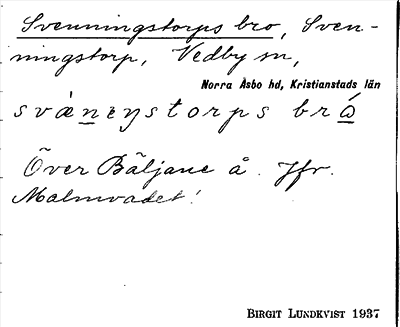 Svenningstorps bro, Sven-
ningstorp, Vedby sn,
Norra Åsbo hd, Kristianstads län
bro
Över Bäljane å. Jfr.
Malmvadet!
BIRGIT LUNDKVIST 1937